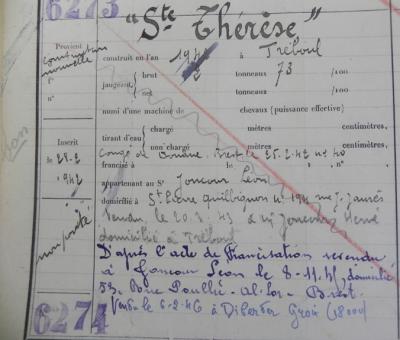 6273
"Ste Thérèse"
Provient
construction
nouvelle
construit en l'an 1942 à Tréboul
jaugeant brut 2 tonneaux 73 /100
net tonneaux /100
muni d'une machine de chevaux (puissance effective)
tirant d'eau chargé mètres centimètres,
non chargé mètres centimètres,
Inscrit
le 28.2
1942
Congé de Douane Brest le 25.2.42 no 40
francisé à le
appartenant au Sr Joncour Léon
domicilié à St Pierre Quilbignon no 194 rue J. Jaurès
Vendu le 20.3.43 à Mr Joncour Hervé
domicilié à Tréboul
D'après l'acte de Francisation revendu
à Joncour Léon le 8-11.41, domicilié
53, Rue Poullic-Al-Lor- Brest.
Vendu le 6.2.46 à (18000)
6274